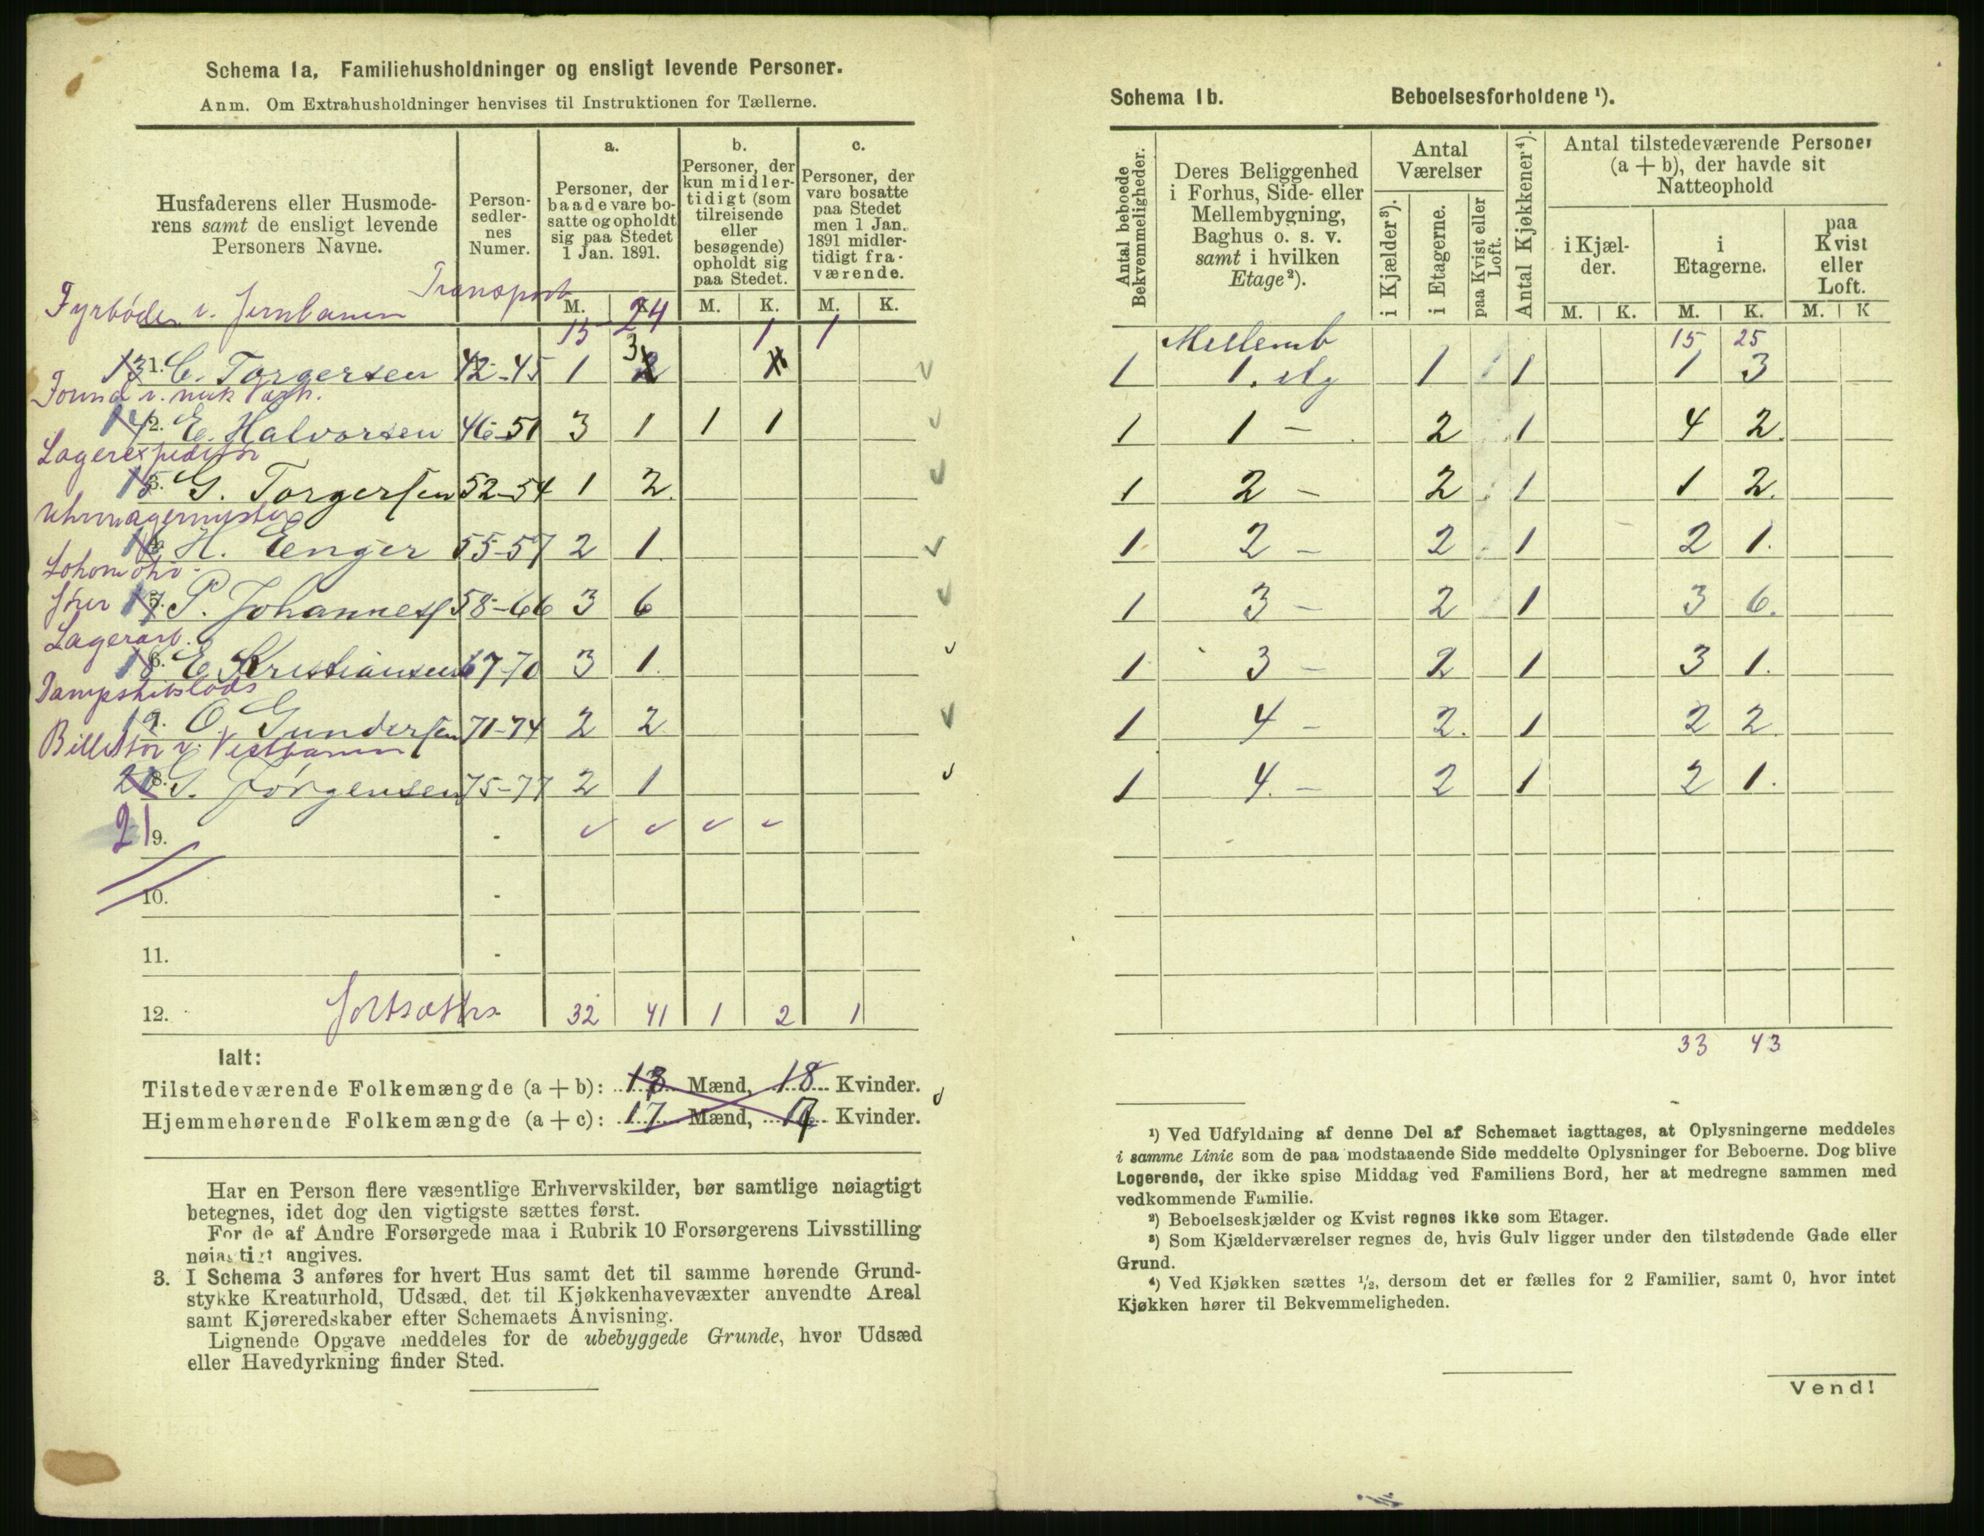 Schema 1a. Familiehusholdninger og ensligt levende Personer.
Anm. Om Extrahusholdninger henvises til Instruktionen for Tællerne.
Husfaderens eller Husmode-
rens samt de ensligt levende
Personers Navne.
Person-
sedler-
nes
Numer.
a.
Personer, der
baade vare bo-
satte og opholdt
sig paa Stedet
1 Jan. 1891.
b.
Personer, der
kun midler-
tidigt (som
tilreisende
eller
besøgende)
opholdt sig
paa Stedet.
c.
Personer, der
vare bosatte
paa Stedet
men 1 Jan.
1891 midler-
tidigt fra-
værende.
M. K. M. K. M. K.
Fyrbøder v. Jernbanen Transport 15 24 1 1
13 1. C. Torgersen 42-45 1 3
14 2. E. Halvorsen 46-51 3 1 1 1
Lagerexpeditør
15 3. G. Torgersen 52-54 1 2
Uhrmagermester
16 4. H. Enger 55-57 2 1
Lokomotiv-
fører 17 5. P. Johannes 58-66 3 6
Lagerarb.
18 6. E Kristiansen 67-70 3 1
Dampskibslods
19 7. O. Gundersen 71-74 2 2
Billettør v. Vestbanen
20 8. G. Jørgensen 75-77 2 1
21 9.
10.
11.
12. fortsættes 32 41 1 2 1
Ialt:
Tilstedeværende Folkemængde (a + b): 18 Mænd, 18 Kvinder.
Hjemmehørende Folkemængde (a + c): 17 Mænd, 17 Kvinder.
Har en Person flere væsentlige Erhvervskilder, bør samtlige nøiagtigt
betegnes, idet dog den vigtigste sættes først.
For de af Andre Forsørgede maa i Rubrik 10 Forsørgerens Livsstilling
nøiagtigt angives.
3. I Schema 3 anføres for hvert Hus samt det til samme hørende Grund-
stykke Kreaturhold, Udsæd, det til Kjøkkenhavevæxter anvendte Areal
samt Kjøreredskaber efter Schemaets Anvisning.
Lignende Opgave meddeles for de ubebyggede Grunde, hvor Udsæd
eller Havedyrkning finder Sted.
Schema 1b. Beboelsesforholdene ¹).
Antal beboede
Bekvemmeligheder.
Deres Beliggenhed
i Forhus, Side- eller
Mellembygning,
Baghus o. s. v.
samt i hvilken
Etage²).
Antal
Værelser
i Kjælder³).
i Etagerne.
paa Kvist eller
Loft.
Antal Kjøkkener⁴).
Antal tilstedeværende Personer
(a + b), der havde sit
Natteophold
i Kjæl-
der.
i
Etagerne.
paa
Kvist
eller
Loft.
M. K. M. K. M. K
Mellemb 15 25
1 1. etg 1 1 1 3
1 1 - 2 1 4 2
1 2 - 2 1 1 2.
1 2 - 2 1 2 1.
1 3 - 2 1 3 6.
1 3 - 2 1 3 1.
1 4 - 2. 1 2 2.
1 4. - 2 1 2 1.
33 43
¹) Ved Udfyldning af denne Del af Schemaet iagttages, at Oplysningerne meddeles
i samme Linie som de paa modstaaende Side meddelte Oplysninger for Beboerne. Dog blive
Logerende, der ikke spise Middag ved Familiens Bord, her at medregne sammen med
vedkommende Familie.
²) Beboelseskjælder og Kvist regnes ikke som Etager.
³) Som Kjælderværelser regnes de, hvis Gulv ligger under den tilstødende Gade eller
Grund.
⁴) Ved Kjøkken sættes ½, dersom det er fælles for 2 Familier, samt 0, hvor intet
Kjøkken hører til Bekvemmeligheden.
Vend!